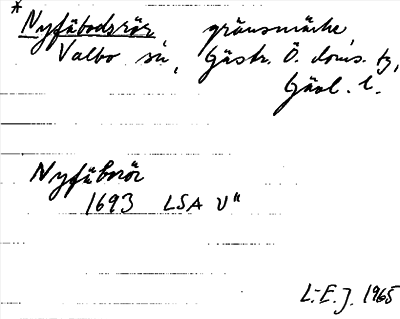 * Nyfäbodsrör gränsmärke
Valbo sn, Gästr. Ö. doms. tg,
Gävl. l.
Nyfäborör
1693 LSA V"
L-E. J. 1965